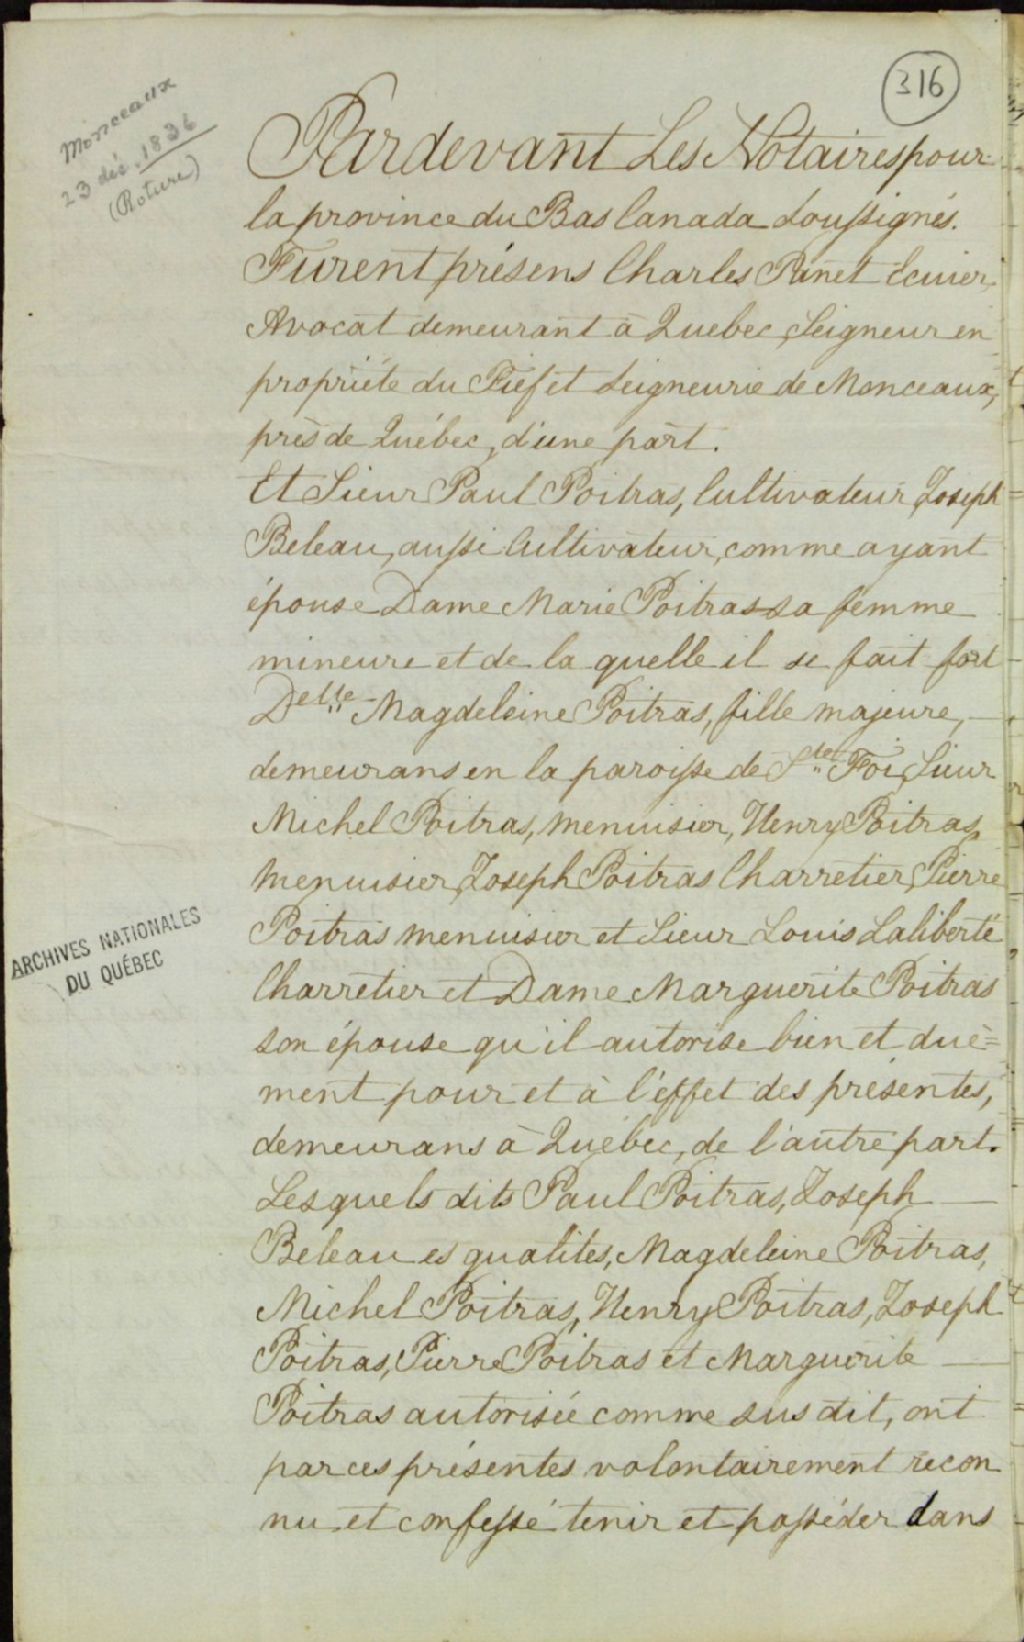 316
Monceaux
23 déc. 1836
(Roture)
Pardevant Les Notaires pour
la province du Bas Canada soussignés.
Furent présens Charles Panet Ecuier,
Avocat demeurant à Quebec, Seigneur en
propriété du Fief et Seigneurie de Monceaux,
près de Québec, d'une part.
Et Sieur Paul Poitras, Cultivateur, Joseph
Beleau, aussi Cultivateur, comme ayant
épouse Dame Marie Poitras sa femme
mineure et de la quelle il se fait fort
Delle Magdeleine Poitras, fille majeure,
demeurans en la paroisse de Ste Foi, Sieur
Michel Poitras, menuisier, Henry Poitras,
menuisier, Joseph Poitras Charretier, Pierre
Poitras menuisier et Sieur Louis Laliberté
Charretier et Dame Marguerite Poitras
son épouse qu'il autorise bien et due=
ment pour et à l'effet des présentes,
demeurans à Québec, de l'autre part.
Lesquels dits Paul Poitras, Joseph
Beleau es qualites, Magdeleine Poitras,
Michel Poitras, Henry Poitras, Joseph
Poitras, Pierre Poitras et Marguerite
Poitras autorisée comme sus dit, ont
par ces présentes volontairement recon
nu et confessé tenir et posséder dans
ARCHIVES NATIONALES
DU QUÉBEC